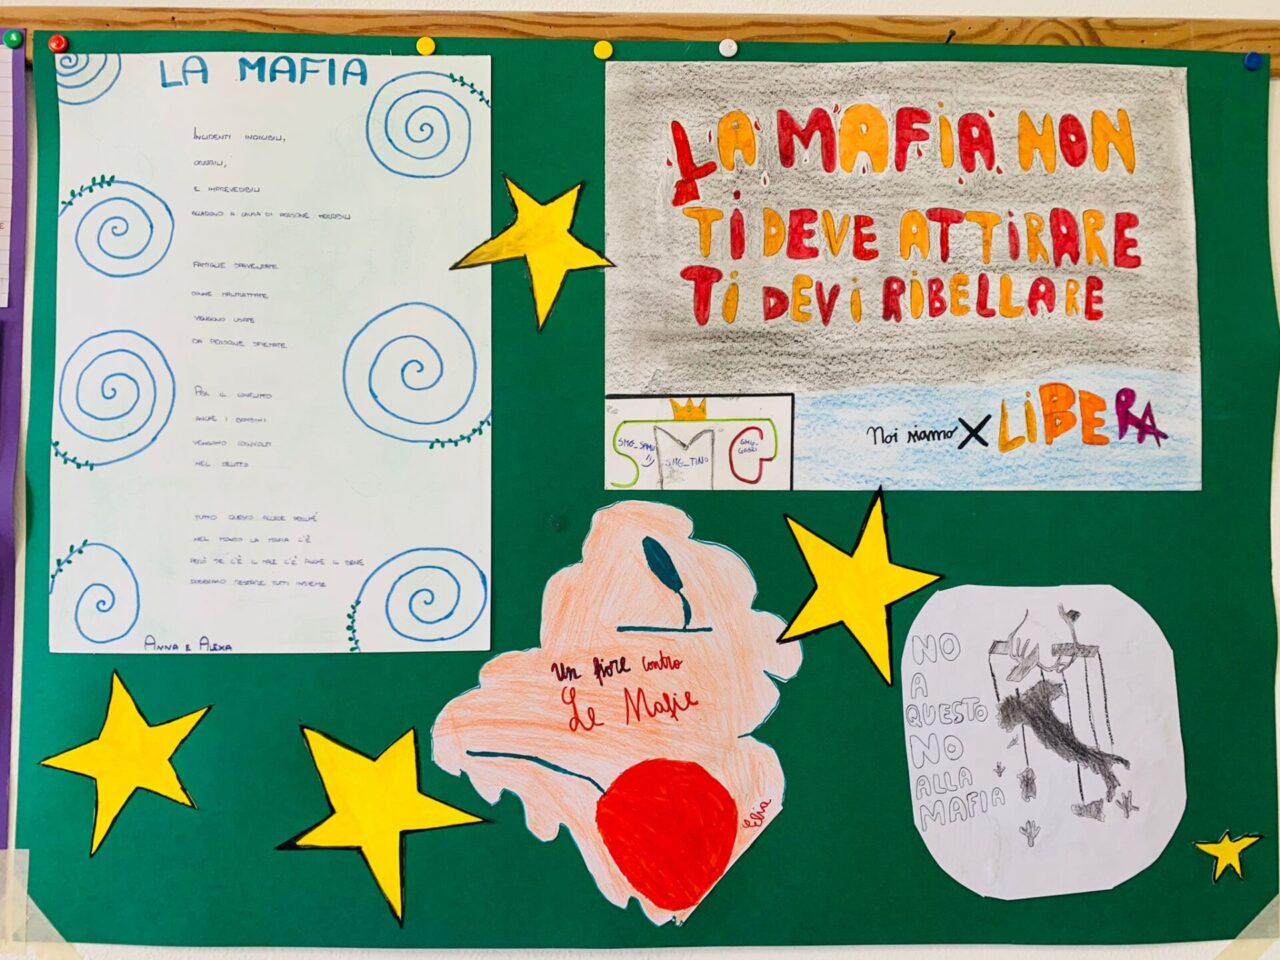 LA MAFIA
INCIDENTI INDICIBILI,
ORRIBILI,
E IMPREVEDIBILI
ACCADONO A CAUSA DI PERSONE TERRIBILI
FAMIGLIE SPAVENTATE
DONNE MALTRATTATE
VENGONO USATE
DA PERSONE SPIETATE
PER IL CONFLITTO
ANCHE I BAMBINI
VENGONO COINVOLTI
NEL DELITTO
TUTTO QUESTO ACCADE PERCHÉ
NEL MONDO LA MAFIA C'È
PERÒ SE C'È IL MALE C'È ANCHE IL BENE
DOBBIAMO RESTARE TUTTI INSIEME
ANNA E ALEXA
LA MAFIA NON
TI DEVE ATTIRARE
TI DEVI RIBELLARE
Noi siamo X LIBERA
SMG
SMG_SAMU
SMG_TINO
SMG_GABRI
Un fiore contro
Le Mafie
Elia
NO
A
QUESTO
NO
ALLA
MAFIA